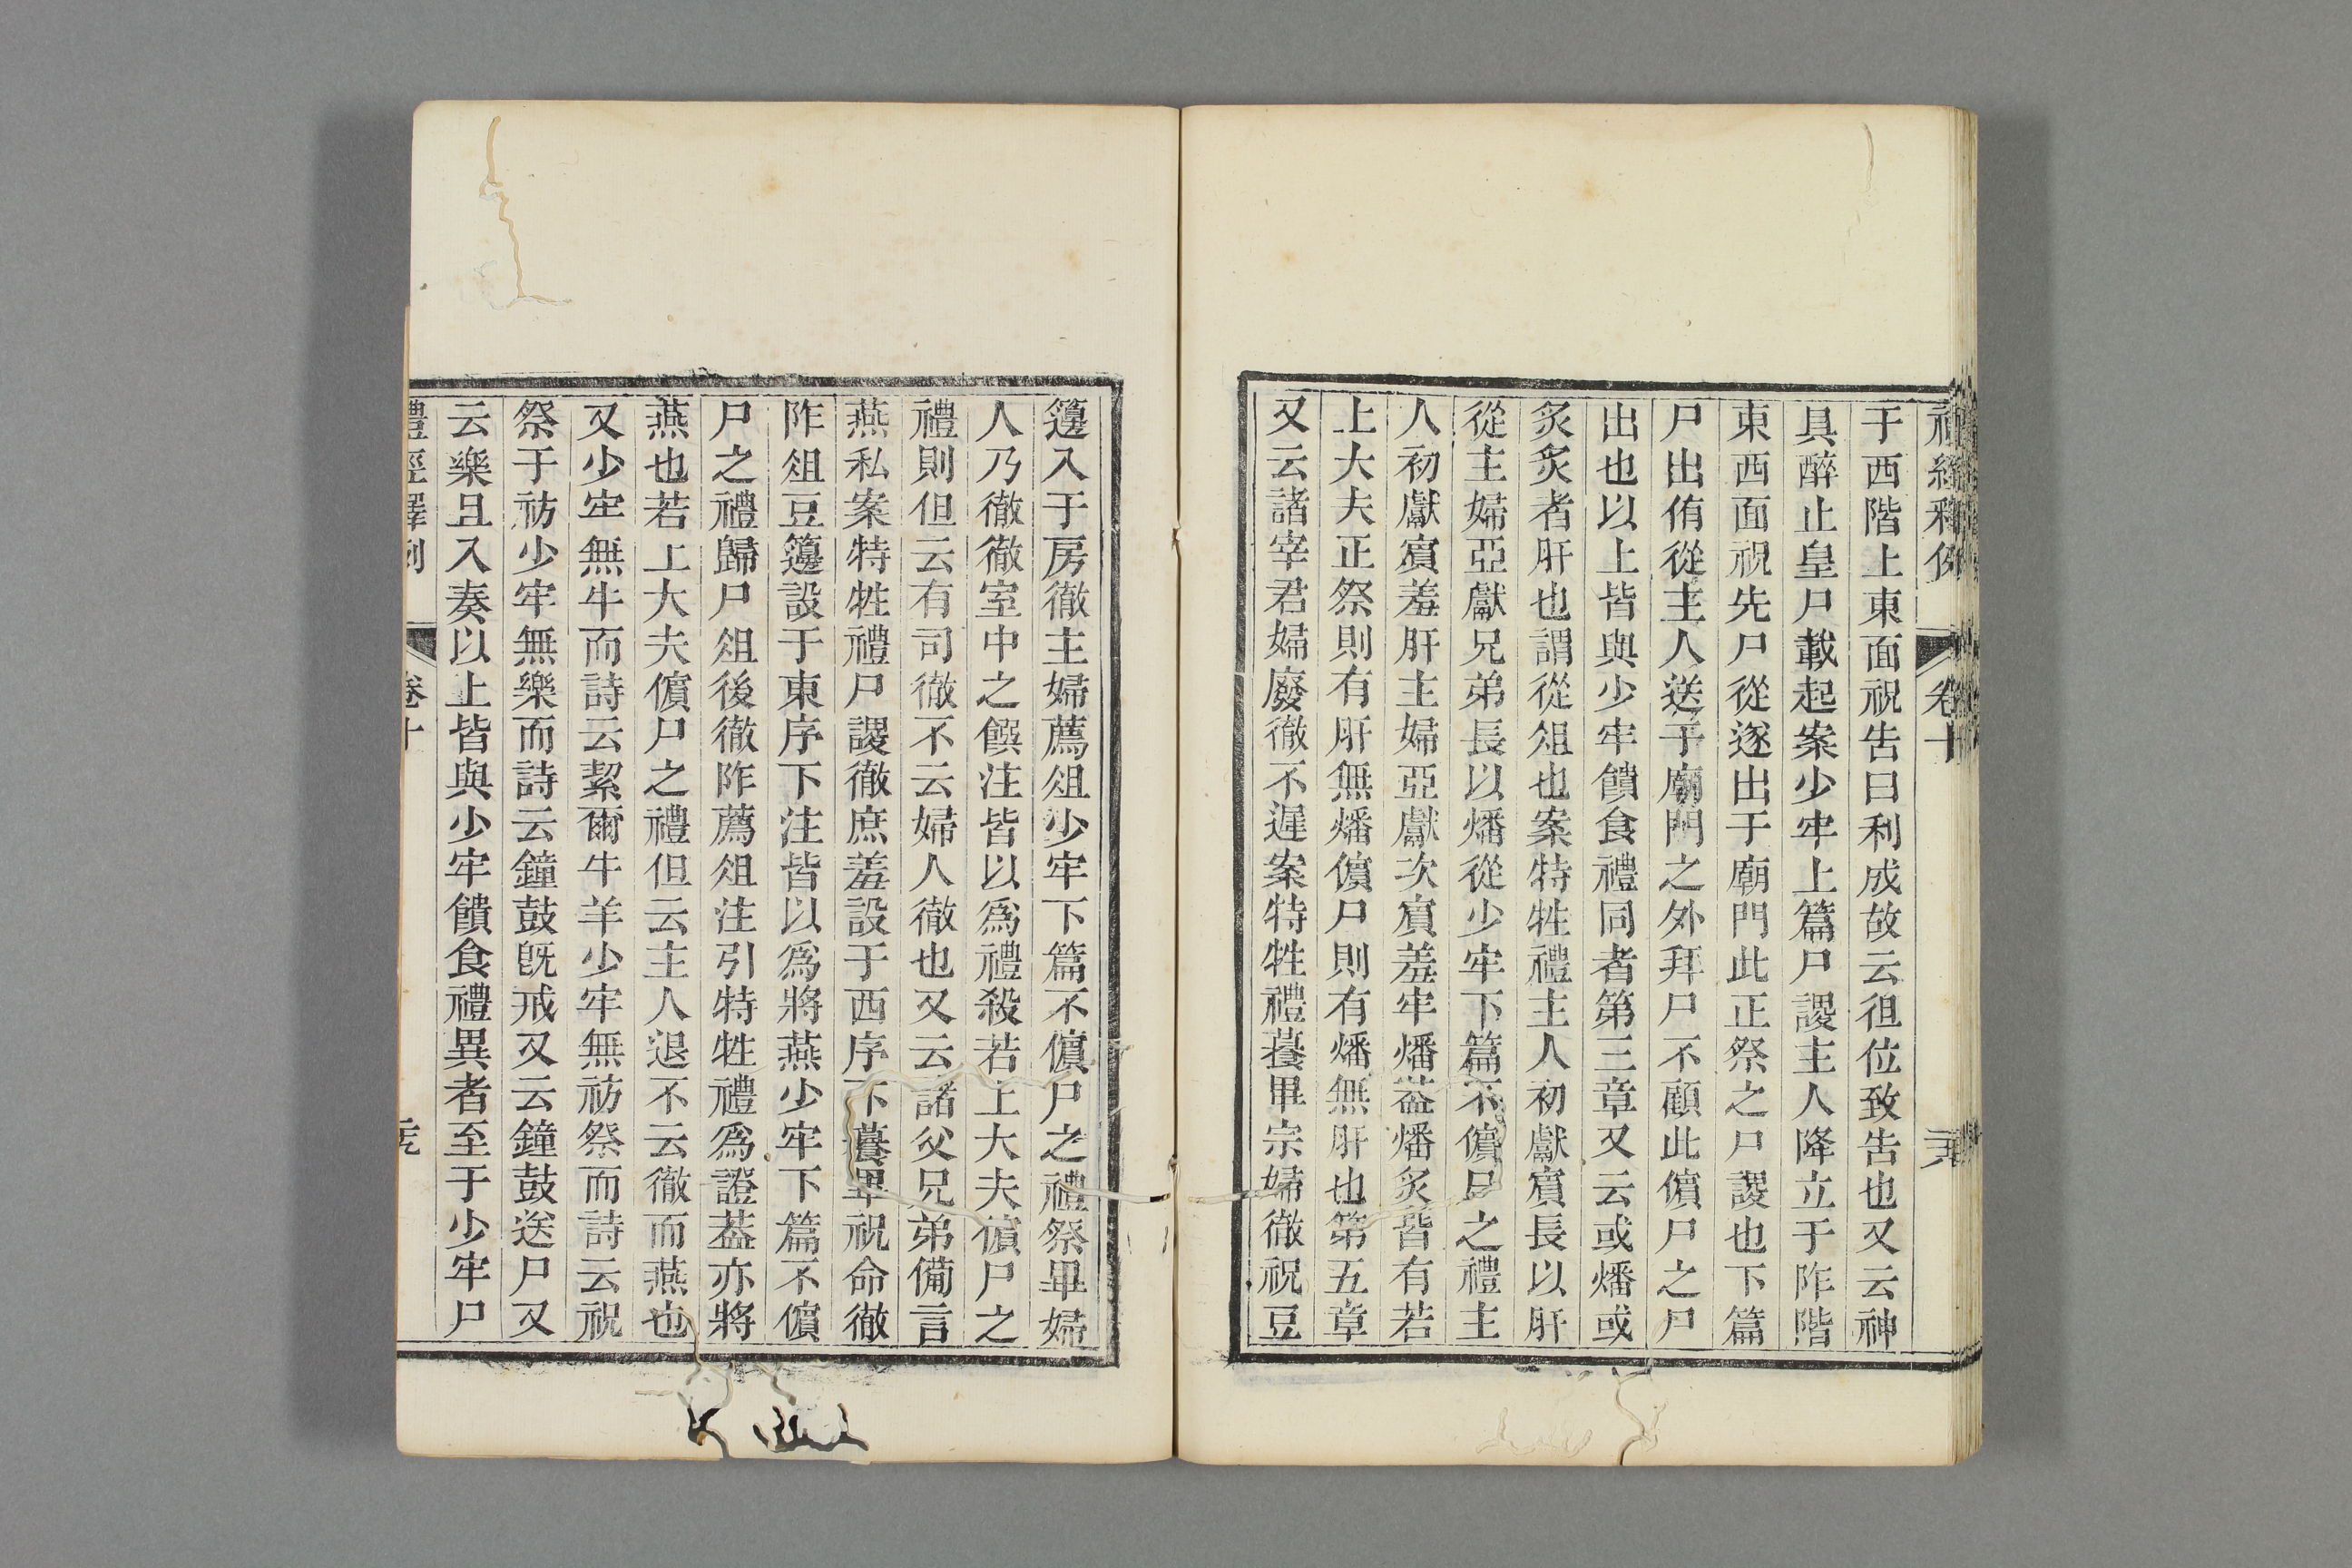 禮經釋例 卷十
于西階上東面祝告曰利成故云徂位致告也又云神
具醉止皇尸載起案少牢上篇尸謖主人降立于阼階
東西面祝先尸從遂出于廟門此正祭之尸謖也下篇
尸出侑從主人送于廟門之外拜尸不顧此儐尸之尸
出也以上皆與少牢饋食禮同者第三章又云或燔或
炙炙者肝也謂從俎也案特牲禮主人初獻賓長以肝
從主婦亞獻兄弟長以燔從少牢下篇不儐尸之禮主
人初獻賓羞肝主婦亞獻次賓羞牢燔葢燔炙皆有若
上大夫正祭則有肝無燔儐尸則有燔無肝也第五章
又云諸宰君婦廢徹不遲案特牲禮養畢宗婦徹祝豆
籩入于房徹主婦薦俎少牢下篇不儐尸之禮祭畢婦
人乃徹徹室中之饌注皆以爲禮殺若上大夫儐尸之
禮則但云有司徹不云婦人徹也又云諸父兄弟備言
燕私案特牲禮尸謖徹庶羞設于西序下養畢祝命徹
阼俎豆籩設于東序下注皆以爲將燕少牢下篇不儐
尸之禮歸尸俎後徹阼薦俎注引特牲禮爲證葢亦將
燕也若上大夫儐尸之禮但云主人退不云徹而燕也
又少牢無牛而詩云絜爾牛羊少牢無祊祭而詩云祝
祭于祊少牢無樂而詩云鐘鼓旣戒又云鐘鼓送尸又
云樂且入奏以上皆與少牢饋食禮異者至于少牢尸
禮經釋例 卷十